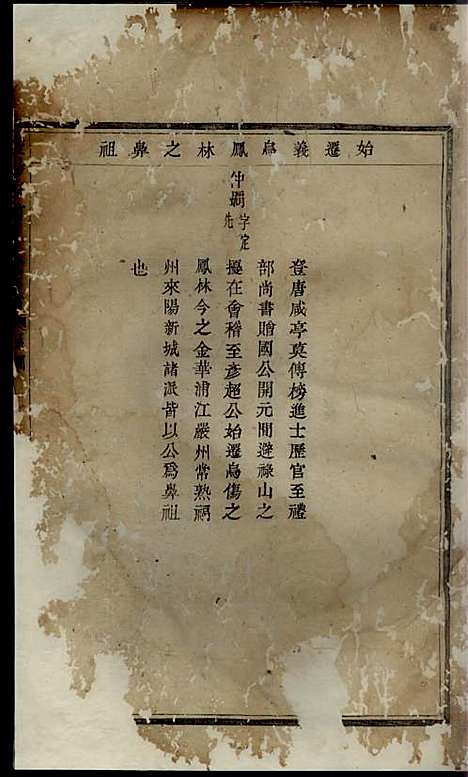 始遷義烏鳳林之鼻祖
仲嗣字定先
登唐咸亨莫傳榜進士歷官至禮
部尚書贈國公開元間避祿山之
擾在會稽至彥超公始遷烏傷之
鳳林今之金華浦江嚴州常熟祠
州來陽新城諸派皆以公爲鼻祖
也